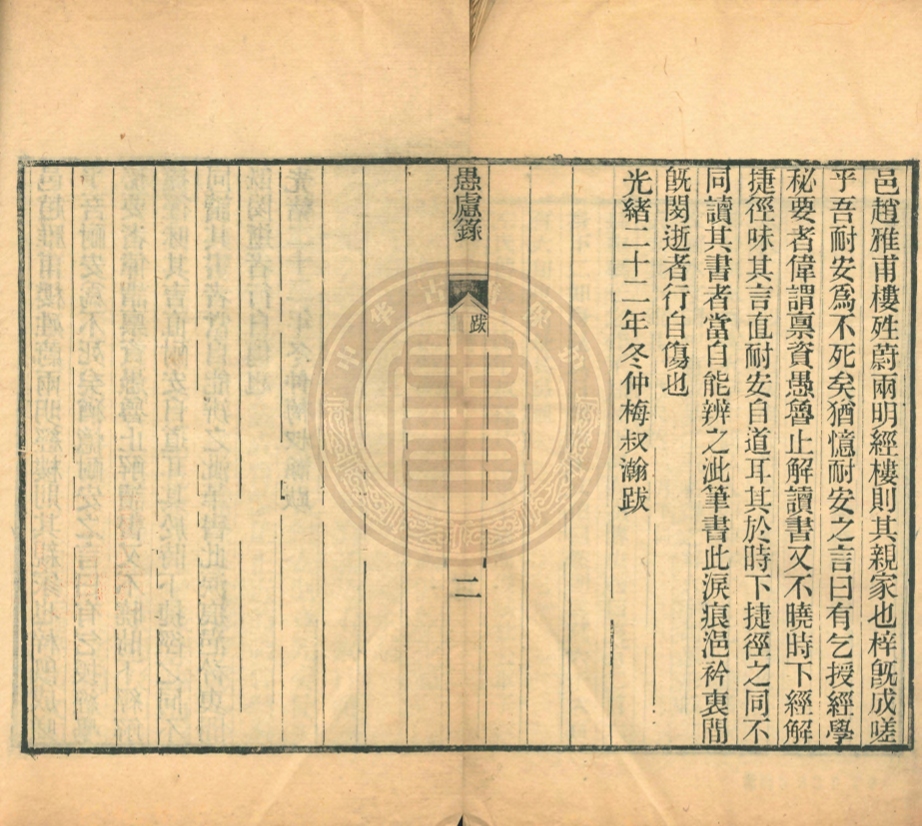 邑趙雅甫樓殅蔚兩明經樓則其親家也梓旣成嗟
乎吾耐安爲不死矣猶憶耐安之言曰有乞授經學
秘要者偉謂禀資愚魯止解讀書又不曉時下經解
捷徑味其言直耐安自道耳其於時下捷徑之同不
同讀其書者當自能辨之泚筆書此淚痕浥衿裏閒
旣閔逝者行自傷也
光緒二十二年冬仲梅叔瀚跋
愚慮錄
跋
二